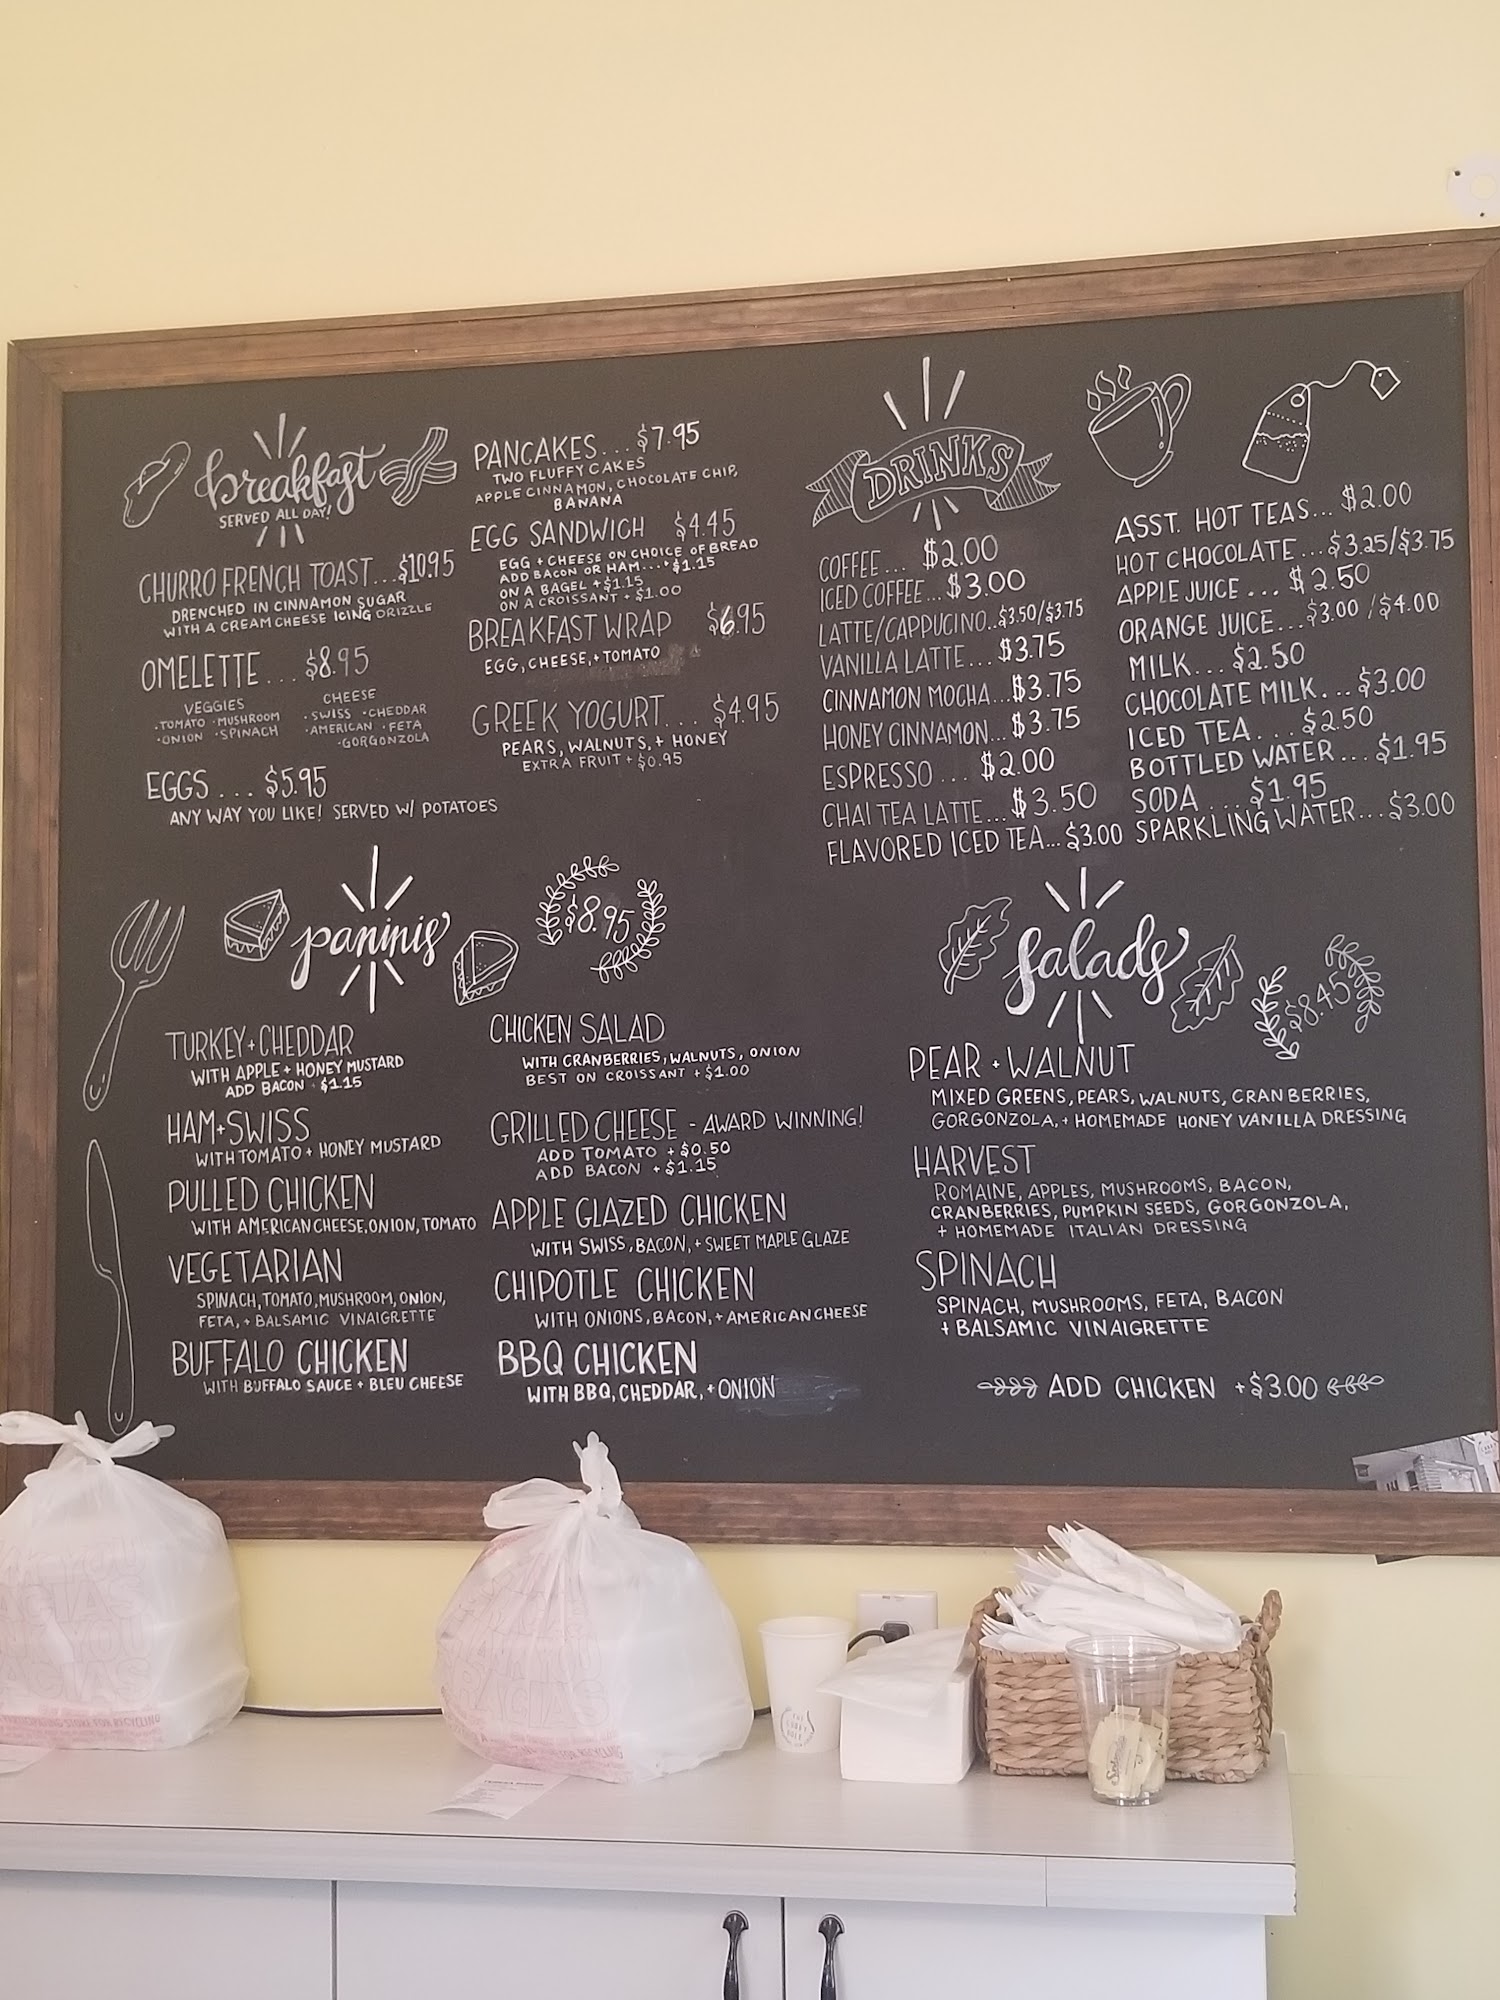 breakfast
SERVED ALL DAY!
CHURRO FRENCH TOAST...$10.95
DRENCHED IN CINNAMON SUGAR
WITH A CREAM CHEESE ICING DRIZZLE
OMELETTE... $8.95
VEGGIES
·TOMATO ·MUSHROOM
·ONION ·SPINACH
CHEESE
·SWISS ·CHEDDAR
·AMERICAN ·FETA
·GORGONZOLA
EGGS ... $5.95
ANY WAY YOU LIKE! SERVED W/ POTATOES
PANCAKES... $7.95
TWO FLUFFY CAKES
APPLE CINNAMON, CHOCOLATE CHIP,
BANANA
EGG SANDWICH $4.45
EGG + CHEESE ON CHOICE OF BREAD
ADD BACON OR HAM...+$1.15
ON A BAGEL +$1.15
ON A CROISSANT +$1.00
BREAKFAST WRAP $6.95
EGG, CHEESE, + TOMATO
GREEK YOGURT... $4.95
PEARS, WALNUTS, + HONEY
EXTRA FRUIT + $0.95
DRINKS
COFFEE... $2.00
ICED COFFEE... $3.00
LATTE/CAPPUCINO..$3.50/$3.75
VANILLA LATTE... $3.75
CINNAMON MOCHA...$3.75
HONEY CINNAMON...$3.75
ESPRESSO ... $2.00
CHAI TEA LATTE...$3.50
FLAVORED ICED TEA...$3.00
ASST. HOT TEAS... $2.00
HOT CHOCOLATE...$3.25/$3.75
APPLE JUICE ... $2.50
ORANGE JUICE...$3.00/$4.00
MILK... $2.50
CHOCOLATE MILK...$3.00
ICED TEA... $2.50
BOTTLED WATER...$1.95
SODA ... $1.95
SPARKLING WATER...$3.00
paninis
$8.95
TURKEY+CHEDDAR
WITH APPLE + HONEY MUSTARD
ADD BACON + $1.15
HAM+SWISS
WITH TOMATO + HONEY MUSTARD
PULLED CHICKEN
WITH AMERICAN CHEESE, ONION, TOMATO
VEGETARIAN
SPINACH, TOMATO, MUSHROOM, ONION,
FETA, + BALSAMIC VINAIGRETTE
BUFFALO CHICKEN
WITH BUFFALO SAUCE + BLEU CHEESE
CHICKEN SALAD
WITH CRANBERRIES, WALNUTS, ONION
BEST ON CROISSANT +$1.00
GRILLED CHEESE - AWARD WINNING!
ADD TOMATO +$0.50
ADD BACON +$1.15
APPLE GLAZED CHICKEN
WITH SWISS, BACON, + SWEET MAPLE GLAZE
CHIPOTLE CHICKEN
WITH ONIONS, BACON, + AMERICAN CHEESE
BBQ CHICKEN
WITH BBQ, CHEDDAR, + ONION
salads
$8.45
PEAR + WALNUT
MIXED GREENS, PEARS, WALNUTS, CRANBERRIES,
GORGONZOLA, + HOMEMADE HONEY VANILLA DRESSING
HARVEST
ROMAINE, APPLES, MUSHROOMS, BACON,
CRANBERRIES, PUMPKIN SEEDS, GORGONZOLA,
+ HOMEMADE ITALIAN DRESSING
SPINACH
SPINACH, MUSHROOMS, FETA, BACON
+ BALSAMIC VINAIGRETTE
ADD CHICKEN +$3.00
YOU
YOU
FOR RECYCLING
FOR RECYCLING